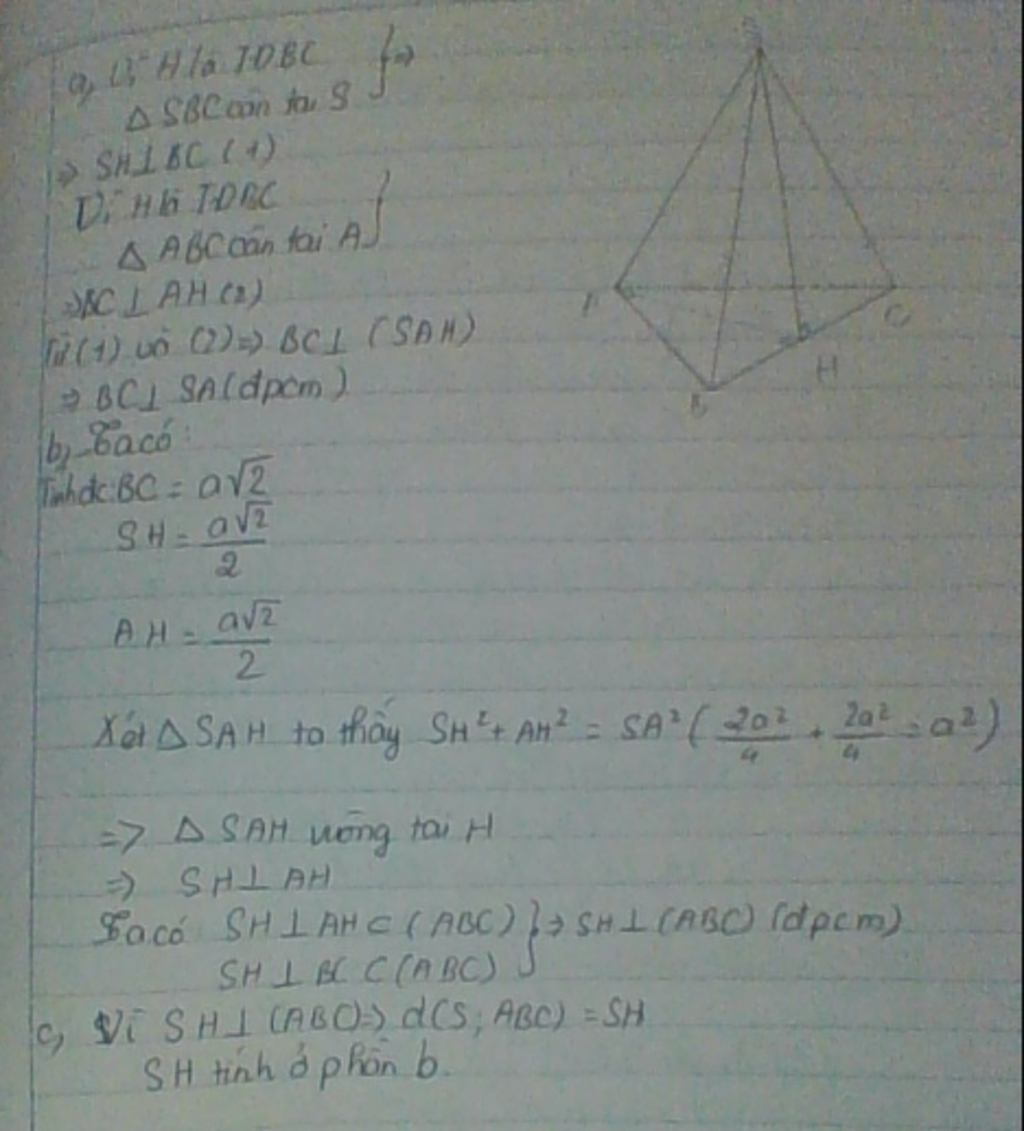 a, Vì H là TĐBC } =>
Δ SBC cân tại S
=> SH⊥BC (1)
Vì H là TĐBC }
Δ ABC cân tại A
=> BC⊥AH (2)
Từ (1) và (2) => BC⊥ (SAH)
=> BC⊥ SA (đpcm)
b, Ta có:
Tính đc BC = a√2
SH = a√2/2
AH = a√2/2
Xét Δ SAH ta thấy SH² + AH² = SA² (2a²/4 + 2a²/4 = a²)
=> Δ SAH vuông tại H
=> SH⊥AH
Ta có SH⊥AH ⊂ (ABC) } => SH⊥(ABC) (đpcm)
SH⊥BC ⊂ (ABC)
c, Vì SH⊥(ABC) => d(S; ABC) = SH
SH tính ở phần b.
S
A
C
H
B